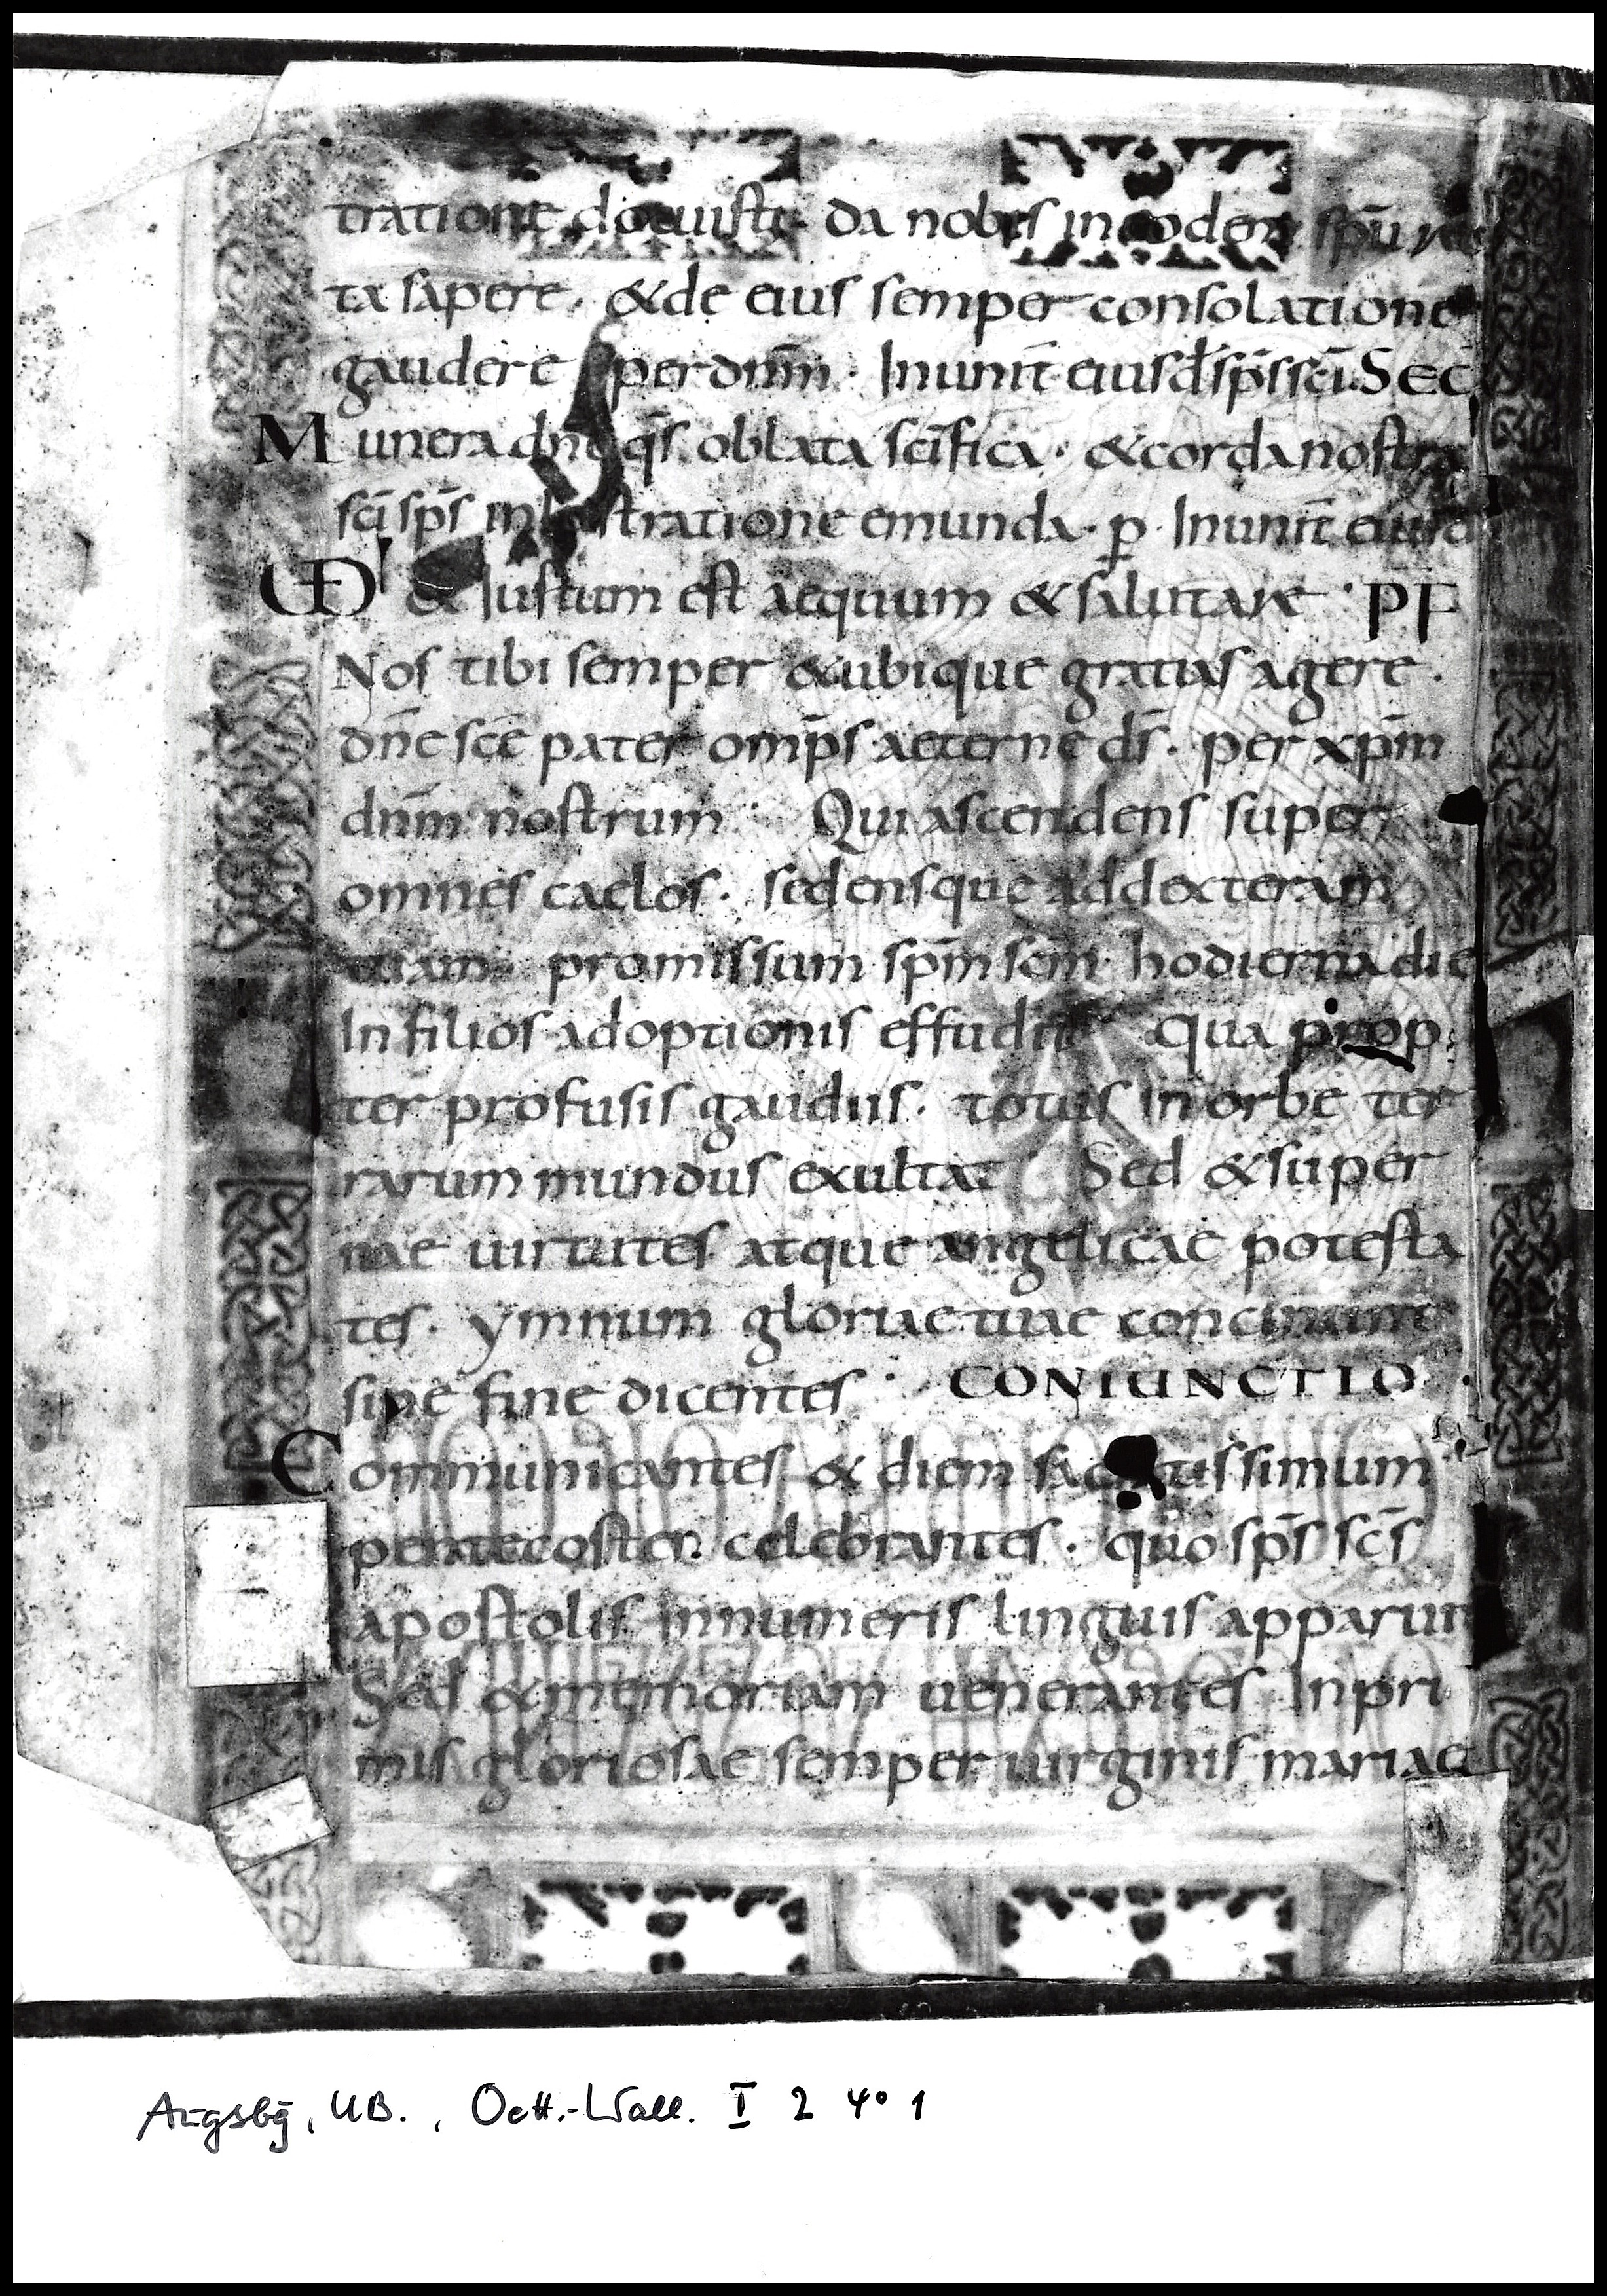 tratione docuisti· da nobis in eodem spu rec
ta sapere· & de eius semper consolatione
gaudere per dnm̄· In unit̄ eiusd̄ sp̄s sc̄i· SEC̄
Munera dn̄e q̄s oblata sc̄ifica· & corda nostra
sc̄i sp̄s inlustratione emunda· p̱· In unit̄ eiusd
UD & Iustum est aequum & salutare· PF
Nos tibi semper & ubique gratias agere·
dn̄e sc̄e pater omp̄s aeterne ds̄· per xp̄m
dnm̄ nostrum· Qui ascendens super
omnes caelos· sedensque ad dexteram
tuam· promissum sp̄m sc̄m hodierna die
In filios adoptionis effudit· Qua prop
ter profusis gaudiis· totus In orbe ter
rarum mundus exultat· Sed & super
nae uirtutes atque angelicae potesta
tes· ymnum gloriae tuae concinunt
sine fine dicentes· CONIUNCTIO·
Communicantes & diem sacratissimum
pentecosten celebrantes· quo sp̄s sc̄s
apostolis Innumeris linguis apparuit
Sed & memoriam uenerantes Inpri
mis gloriosae semper uirginis mariae
Augsbg, UB., Oett.-Wall. I 2 4° 1